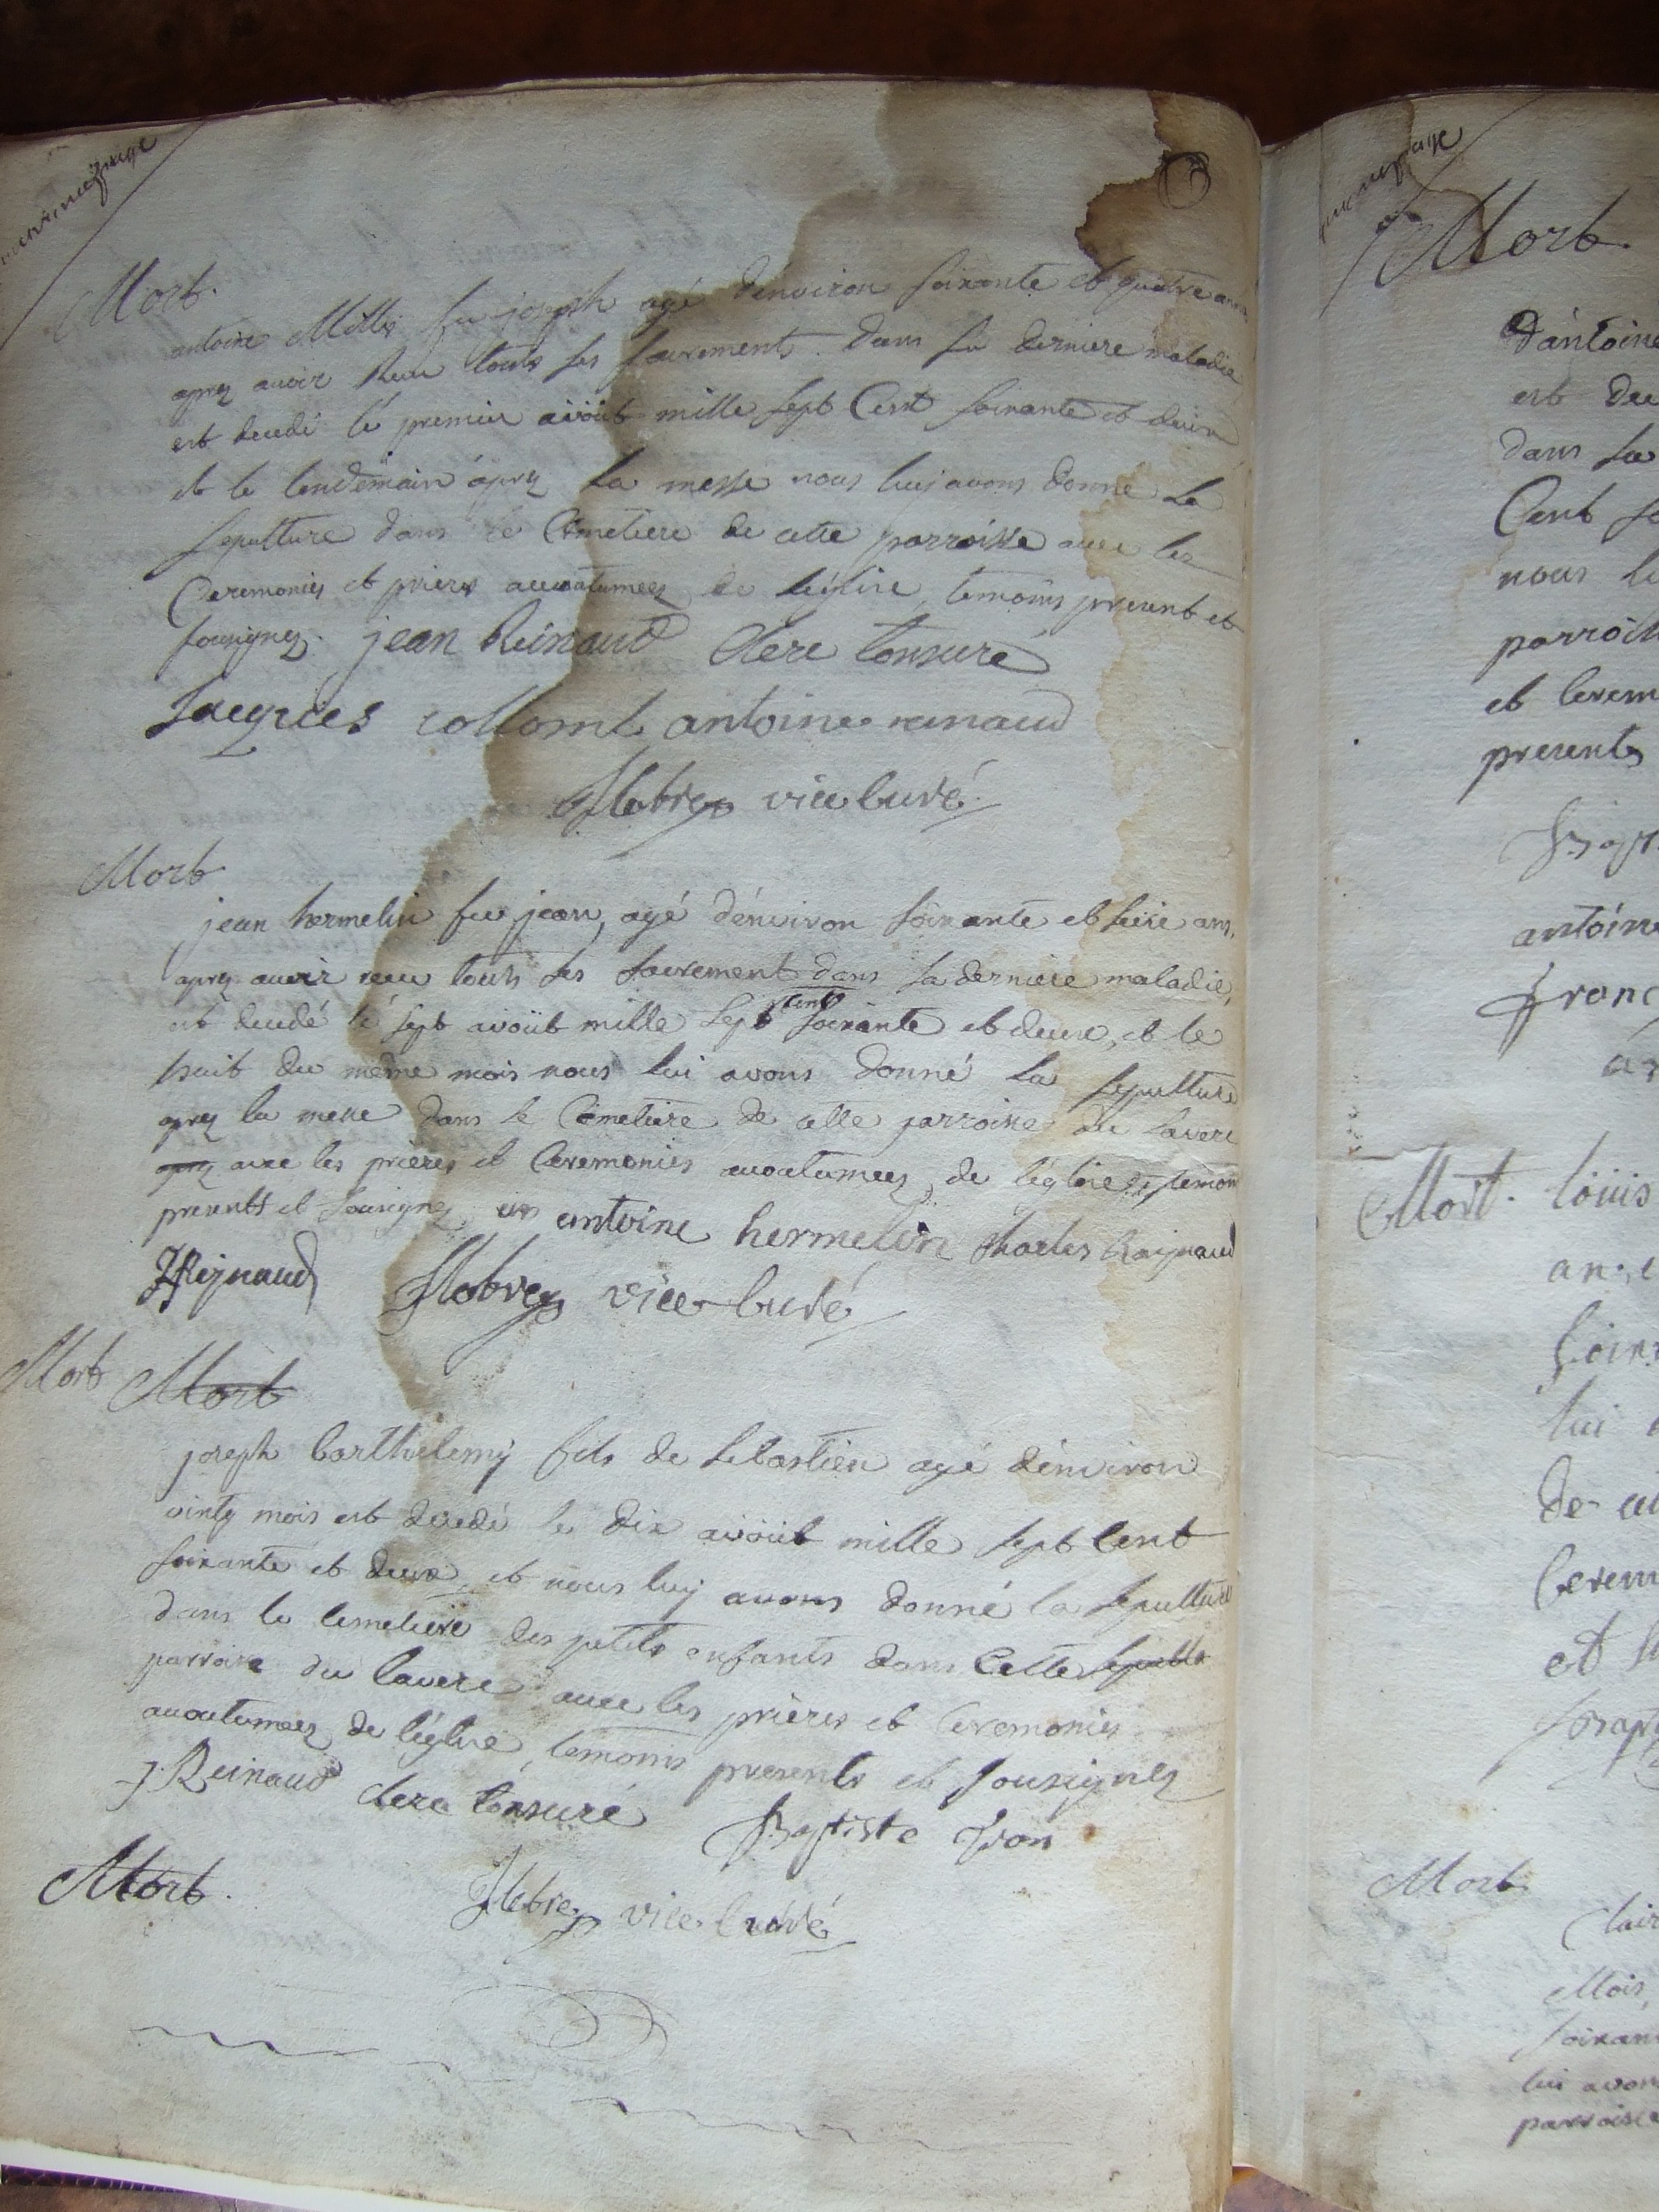 Mort.
antoine Millý feu joseph agé d'environ soixante et quatre ans
aprez avoir Receu touts ses sacrements dans sa derniere maladie
est decedé le premier aivöut mille sept Cent soixante et deux
et le lendemain áprez la messe nous luis avons donné la
sepulture dans le Cimetiere de cette parroisse avec les
Ceremonies et prieres accoutumeez de leglise, temoins present et
sousignez. jean Reinaud clerc tonsuré
Jacques collomb antoine renaud
vice Curé
Mort
jean hermelin feu jean, agé d'environ soixante et seize ans,
aprez avoir receu touts ses sacrement dans sa derniere maladie,
est decedé le sept aivöut mille sept cent soixante et deux, et le
huit du même mois nous lui avons donné la sepulture
aprez la messe dans le Cimetiere de cette parroisse du Laverc
aprez avec les prieres et Ceremonies accoutumeez de l'église, temoin
presents et sousignez antoine hermelin Charles Raynaud
Reynaud vice-Curé
Mort Mort
joseph barthelemÿ fils de sebastien agé d'environ
vinty mois est decedé le dix aivöut mille sept Cent
soixante et deux, et nous luy avons donné la sepulture
dans le Cimetiere des petits enfants dans Cette
parroise du laverc avec les prières et Ceremonies
accoutumeez de l'église, temoins presents et sousignez
J. Reinaud clerc tonsuré Baptiste
Mort. vice Curé
Mort.
d'antoine
est
dans sa
Cent
nous
et
presents
antoine
Mort. löüis
lui
et
Mort
Mois,
lui avons
parroisse